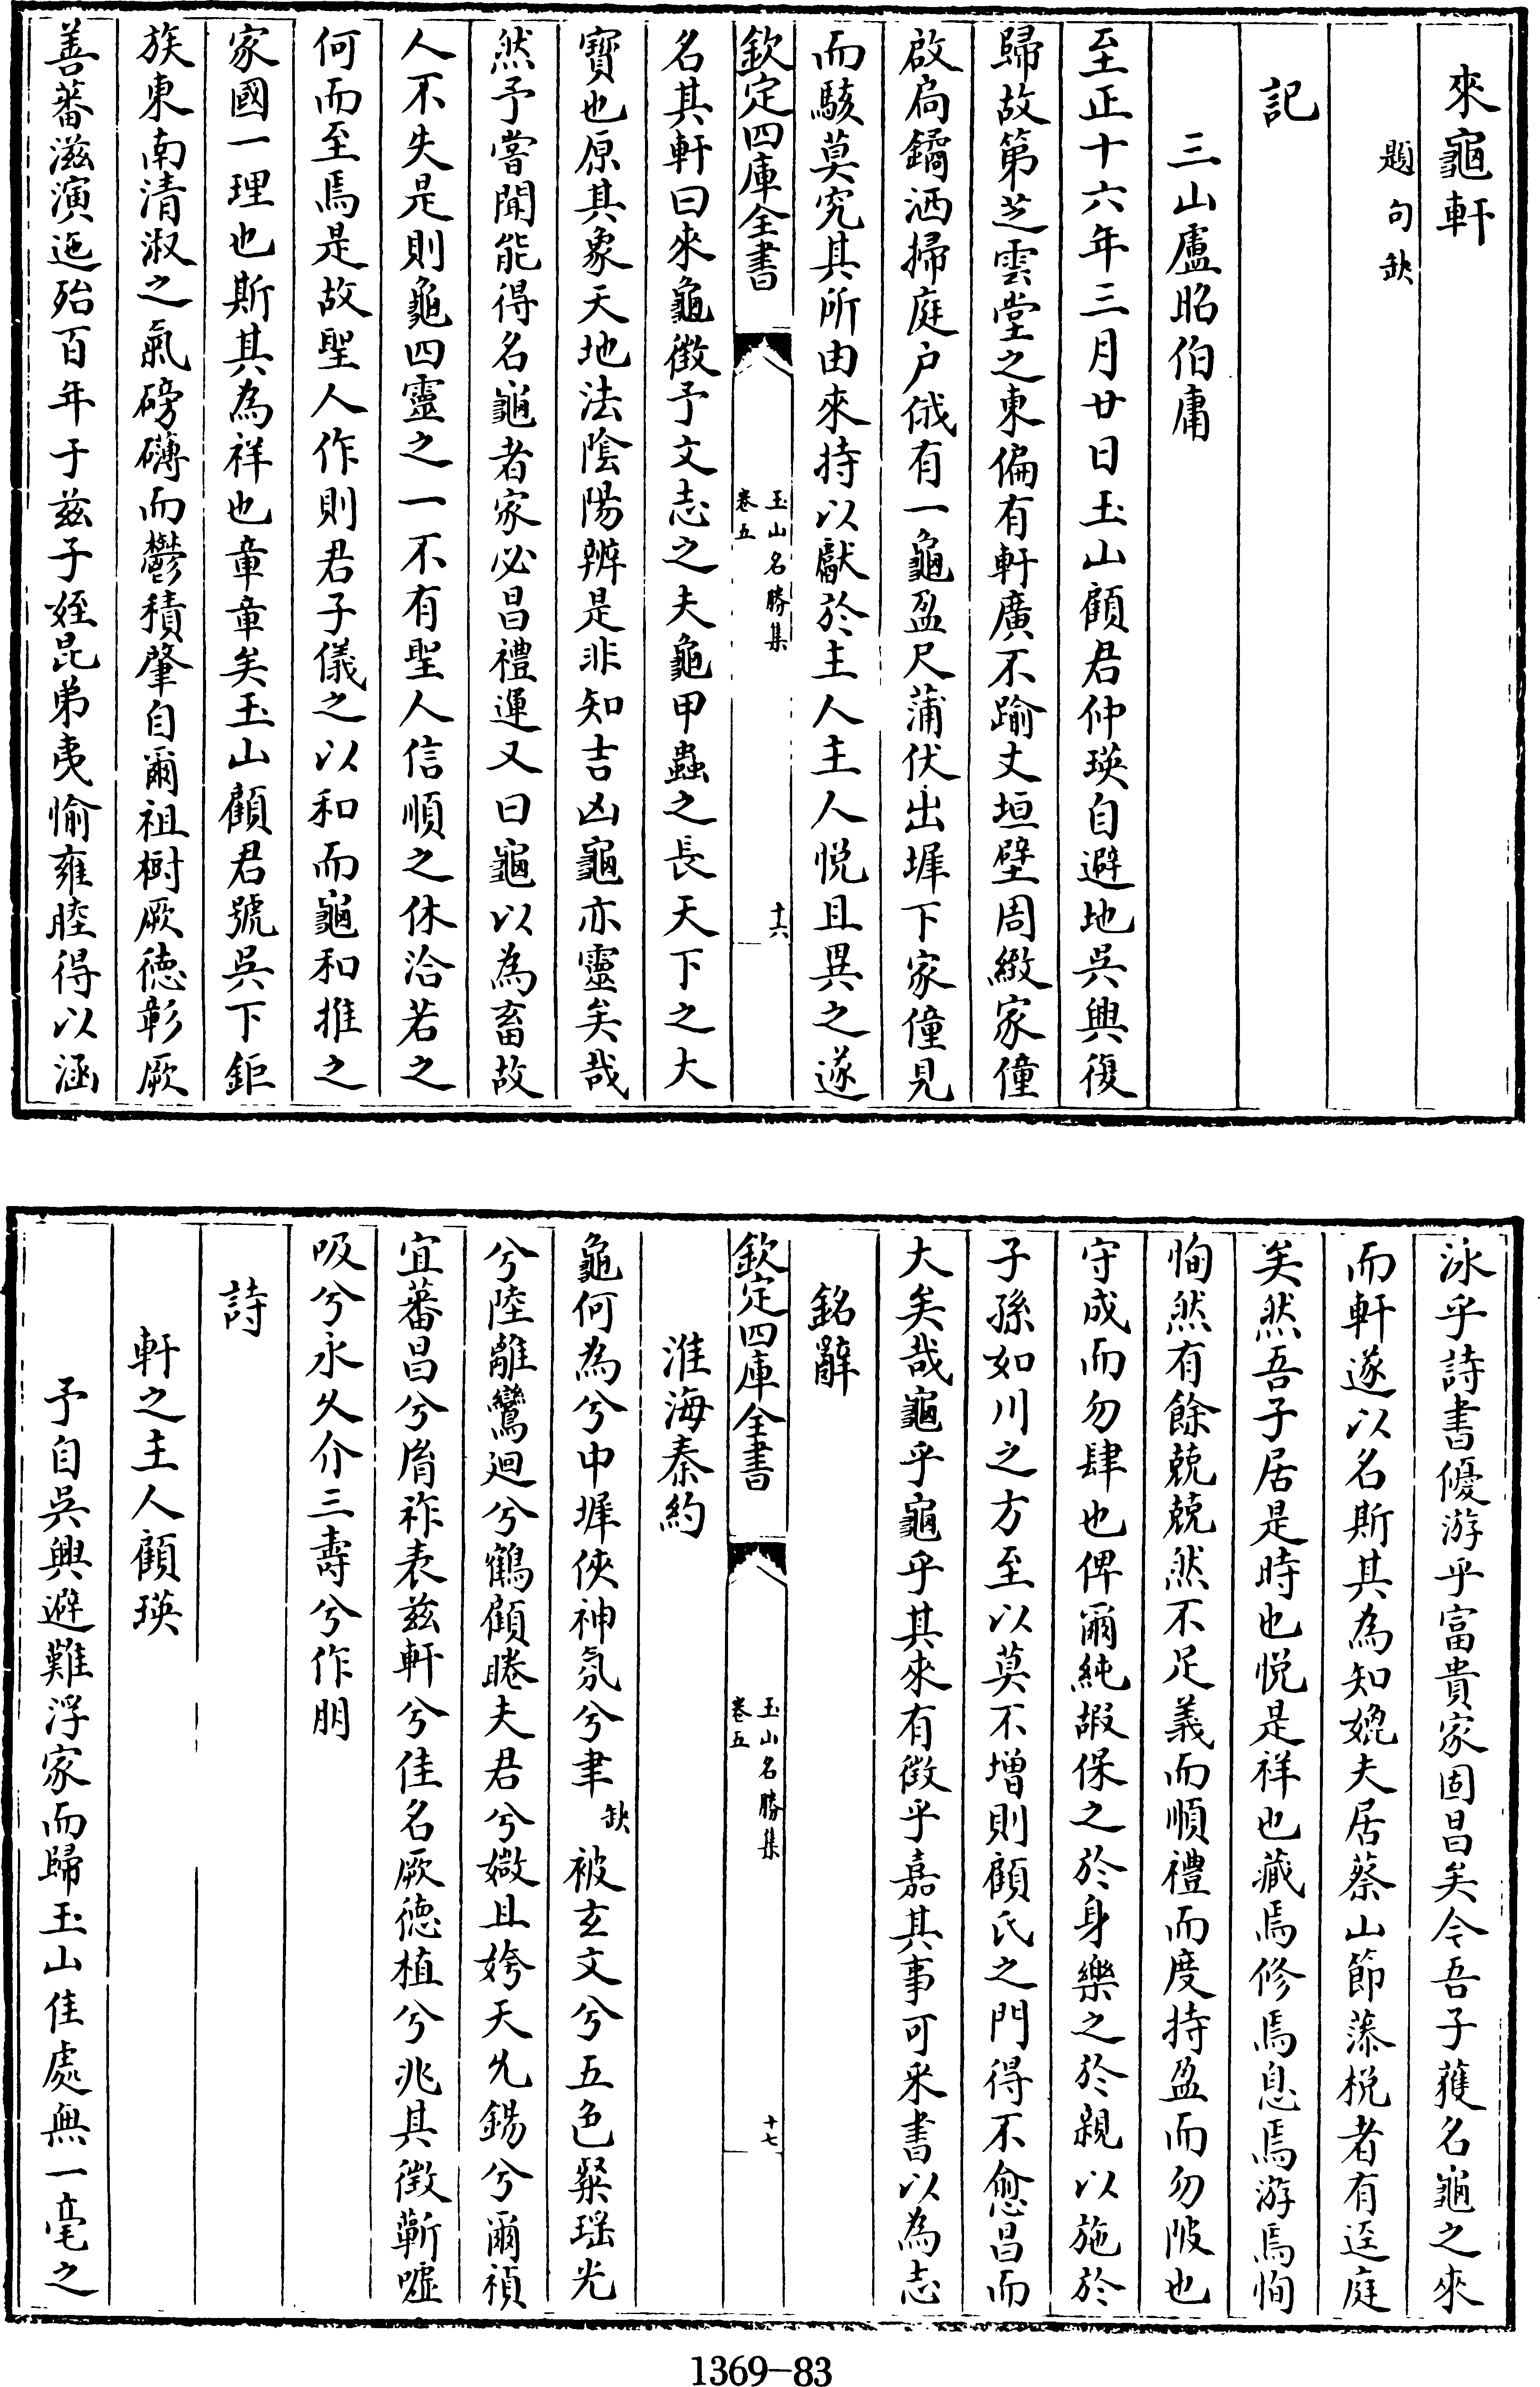 來龜軒
題句缺
記
三山盧昭伯庸
至正十六年三月廿日玉山顧君仲瑛自避地吳興復
歸故第芝雲堂之東偏有軒廣不踰丈垣壁周緻家僮
啟扃鐍洒掃庭户俄有一龜盈尺蒲伏出墀下家僮見
而駭莫究其所由來持以獻於主人主人悅且異之遂
欽定四庫全書
玉山名勝集
卷五
十六
名其軒曰來龜徵予文志之夫龜甲蟲之長天下之大
寶也原其象天地法陰陽辨是非知吉凶龜亦靈矣哉
然予嘗聞能得名龜者家必昌禮運又曰龜以為畜故
人不失是則龜四靈之一不有聖人信順之休洽若之
何而至焉是故聖人作則君子儀之以和而龜和推之
家國一理也斯其為祥也章章矣玉山顧君號吳下鉅
族東南清淑之氣磅礴而鬱積肇自爾祖樹厥德彰厥
善蕃滋演迤殆百年于兹子姪昆弟夷愉雍睦得以涵
泳乎詩書優游乎富貴家固昌矣今吾子獲名龜之來
而軒遂以名斯其為知媿夫居蔡山節藻梲者有逕庭
矣然吾子居是時也悅是祥也藏焉修焉息焉游焉恂
恂然有餘兢兢然不足義而順禮而度持盈而勿陂也
守成而勿肆也俾爾純嘏保之於身樂之於親以施於
子孫如川之方至以莫不增則顧氏之門得不愈昌而
大矣哉龜乎龜乎其來有徵乎嘉其事可采書以為志
銘辭
欽定四庫全書
玉山名勝集
卷五
十七
淮海秦約
龜何為兮中墀俠神氛兮聿缺被玄文兮五色粲瑶光
兮陸離鸞迴兮鶴顧睠夫君兮媺且姱天允錫兮爾禎
宜蕃昌兮胤祚表兹軒兮佳名厥德植兮兆其徵蘄噓
吸兮永久介三壽兮作朋
詩
軒之主人顧瑛
予自吳興避難浮家而歸玉山佳處無一毫之
1369-83